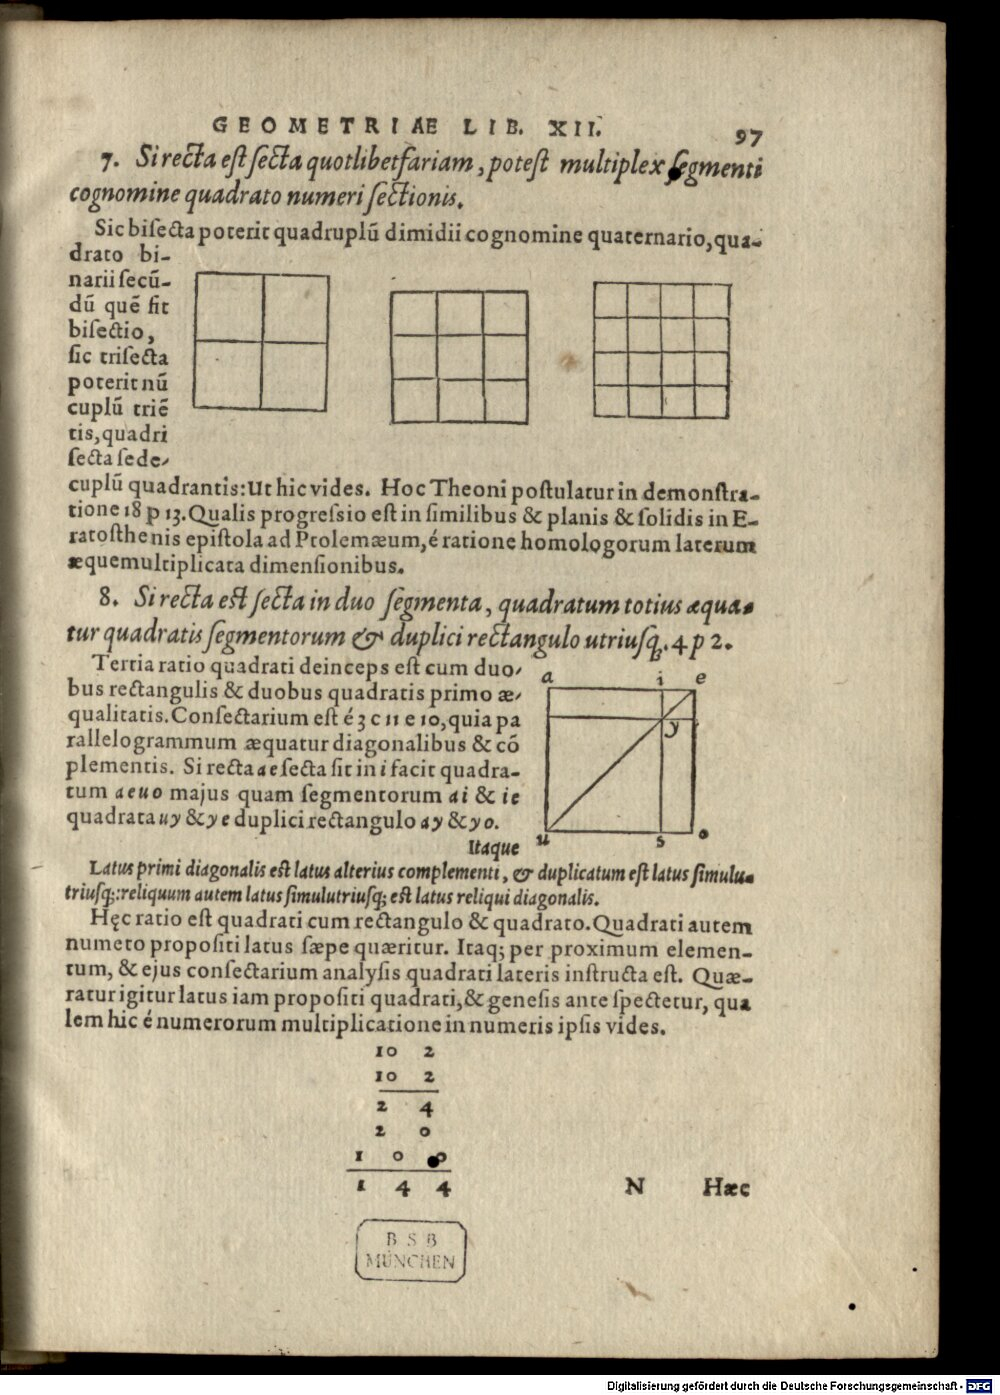 GEOMETRIÆ LIB. XII. 97
7. Si recta est secta quotlibetfariam, potest multiplex segmenti
cognomine quadrato numeri sectionis.
Sic bisecta poterit quadruplũ dimidii cognomine quaternario, qua-
drato bi-
narii secũ-
dũ quẽ fit
bisectio,
sic trisecta
poterit nũ
cuplũ triẽ
tis, quadri
secta sede-
cuplũ quadrantis: Ut hic vides. Hoc Theoni postulatur in demonstra-
tione 18 p 13. Qualis progressio est in similibus & planis & solidis in E-
ratosthenis epistola ad Ptolemæum, é ratione homologorum laterum
æquemultiplicata dimensionibus.
8. Si recta est secta in duo segmenta, quadratum totius æqua-
tur quadratis segmentorum & duplici rectangulo utriusq. 4 p 2.
Tertia ratio quadrati deinceps est cum duo-
bus rectangulis & duobus quadratis primo æ-
qualitatis. Consectarium est é 3 c 11 e 10, quia pa
rallelogrammum æquatur diagonalibus & cõ
plementis. Si recta ae secta sit in i facit quadra-
tum aeuo majus quam segmentorum ai & ie
quadrata uy & ye duplici rectangulo ay & yo.
a i e
y
u s o
Itaque
Latus primi diagonalis est latus alterius complementi, & duplicatum est latus simulu-
triusq;: reliquum autem latus simulutriusq; est latus reliqui diagonalis.
Hęc ratio est quadrati cum rectangulo & quadrato. Quadrati autem
numero propositi latus sæpe quæritur. Itaq; per proximum elemen-
tum, & ejus consectarium analysis quadrati lateris instructa est. Quæ-
ratur igitur latus iam propositi quadrati, & genesis ante spectetur, qua
lem hic é numerorum multiplicatione in numeris ipsis vides.
10 2
10 2
2 4
2 0
1 0 0
1 4 4
N Hæc
BSB
MÜNCHEN
Digitalisierung gefördert durch die Deutsche Forschungsgemeinschaft - DFG